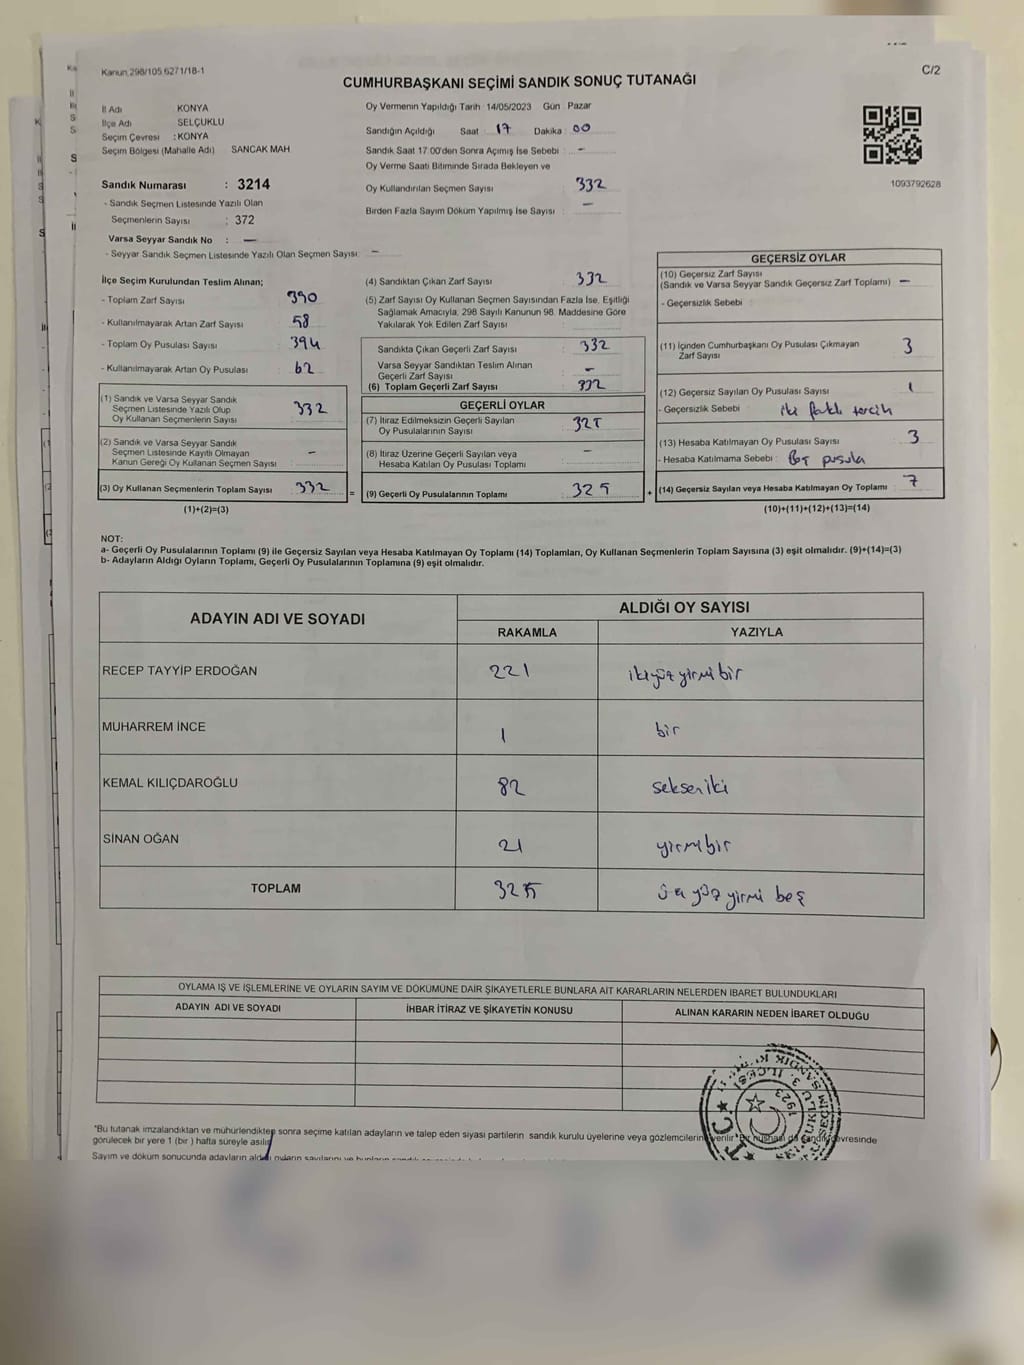 Kanun,298/105,6271/18-1
C/2
CUMHURBAŞKANI SEÇİMİ SANDIK SONUÇ TUTANAĞI
İl Adı KONYA
İlçe Adı SELÇUKLU
Seçim Çevresi : KONYA
Seçim Bölgesi (Mahalle Adı) SANCAK MAH
Oy Vermenin Yapıldığı Tarih 14/05/2023 Gün Pazar
Sandığın Açıldığı Saat 17 Dakika : 00
Sandık Saat 17:00'den Sonra Açımış İse Sebebi : -
Oy Verme Saati Bitiminde Sırada Bekleyen ve
Oy Kullandırılan Seçmen Sayısı : 332
Birden Fazla Sayım Döküm Yapılmış İse Sayısı : -
1093792628
Sandık Numarası : 3214
- Sandık Seçmen Listesinde Yazılı Olan
Seçmenlerin Sayısı : 372
Varsa Seyyar Sandık No : -
- Seyyar Sandık Seçmen Listesinde Yazılı Olan Seçmen Sayısı: -
İlçe Seçim Kurulundan Teslim Alınan;
- Toplam Zarf Sayısı 390
- Kullanılmayarak Artan Zarf Sayısı 58
- Toplam Oy Pusulası Sayısı 394
- Kullanılmayarak Artan Oy Pusulası 62
(1) Sandık ve Varsa Seyyar Sandık
Seçmen Listesinde Yazılı Olup
Oy Kullanan Seçmenlerin Sayısı 332
(2) Sandık ve Varsa Seyyar Sandık
Seçmen Listesinde Kayıtlı Olmayan
Kanun Gereği Oy Kullanan Seçmen Sayısı -
(3) Oy Kullanan Seçmenlerin Toplam Sayısı 332
(1)+(2)=(3)
(4) Sandıktan Çıkan Zarf Sayısı 332
(5) Zarf Sayısı Oy Kullanan Seçmen Sayısından Fazla İse, Eşitliği
Sağlamak Amacıyla, 298 Sayılı Kanunun 98. Maddesine Göre
Yakılarak Yok Edilen Zarf Sayısı :
Sandıkta Çıkan Geçerli Zarf Sayısı : 332
Varsa Seyyar Sandıktan Teslim Alınan
Geçerli Zarf Sayısı : -
(6) Toplam Geçerli Zarf Sayısı : 332
GEÇERLİ OYLAR
(7) İtiraz Edilmeksizin Geçerli Sayılan
Oy Pusulalarının Sayısı 325
(8) İtiraz Üzerine Geçerli Sayılan veya
Hesaba Katılan Oy Pusulası Toplamı -
= (9) Geçerli Oy Pusulalarının Toplamı 325 +
GEÇERSİZ OYLAR
(10) Geçersiz Zarf Sayısı
(Sandık ve Varsa Seyyar Sandık Geçersiz Zarf Toplamı) -
- Geçersizlik Sebebi :
(11) İçinden Cumhurbaşkanı Oy Pusulası Çıkmayan
Zarf Sayısı 3
(12) Geçersiz Sayılan Oy Pusulası Sayısı 1
- Geçersizlik Sebebi : iki farklı tercih
(13) Hesaba Katılmayan Oy Pusulası Sayısı 3
- Hesaba Katılmama Sebebi : Boş pusula
(14) Geçersiz Sayılan veya Hesaba Katılmayan Oy Toplamı 7
(10)+(11)+(12)+(13)=(14)
NOT:
a- Geçerli Oy Pusulalarının Toplamı (9) ile Geçersiz Sayılan veya Hesaba Katılmayan Oy Toplamı (14) Toplamları, Oy Kullanan Seçmenlerin Toplam Sayısına (3) eşit olmalıdır. (9)+(14)=(3)
b- Adayların Aldığı Oyların Toplamı, Geçerli Oy Pusulalarının Toplamına (9) eşit olmalıdır.
ADAYIN ADI VE SOYADI ALDIĞI OY SAYISI
RAKAMLA YAZIYLA
RECEP TAYYİP ERDOĞAN 221 ikiyüz yirmi bir
MUHARREM İNCE 1 bir
KEMAL KILIÇDAROĞLU 82 seksen iki
SİNAN OĞAN 21 yirmi bir
TOPLAM 325 üç yüz yirmi beş
OYLAMA İŞ VE İŞLEMLERİNE VE OYLARIN SAYIM VE DÖKÜMÜNE DAİR ŞİKAYETLERLE BUNLARA AİT KARARLARIN NELERDEN İBARET BULUNDUKLARI
ADAYIN ADI VE SOYADI İHBAR İTİRAZ VE ŞİKAYETİN KONUSU ALINAN KARARIN NEDEN İBARET OLDUĞU
*Bu tutanak imzalandıktan ve mühürlendikten sonra seçime katılan adayların ve talep eden siyasi partilerin sandık kurulu üyelerine veya gözlemcilerine verilir. Bir nüshası da sandık çevresinde
görülecek bir yere 1 (bir) hafta süreyle asılır
Sayım ve döküm sonucunda adayların
T.C.
1923